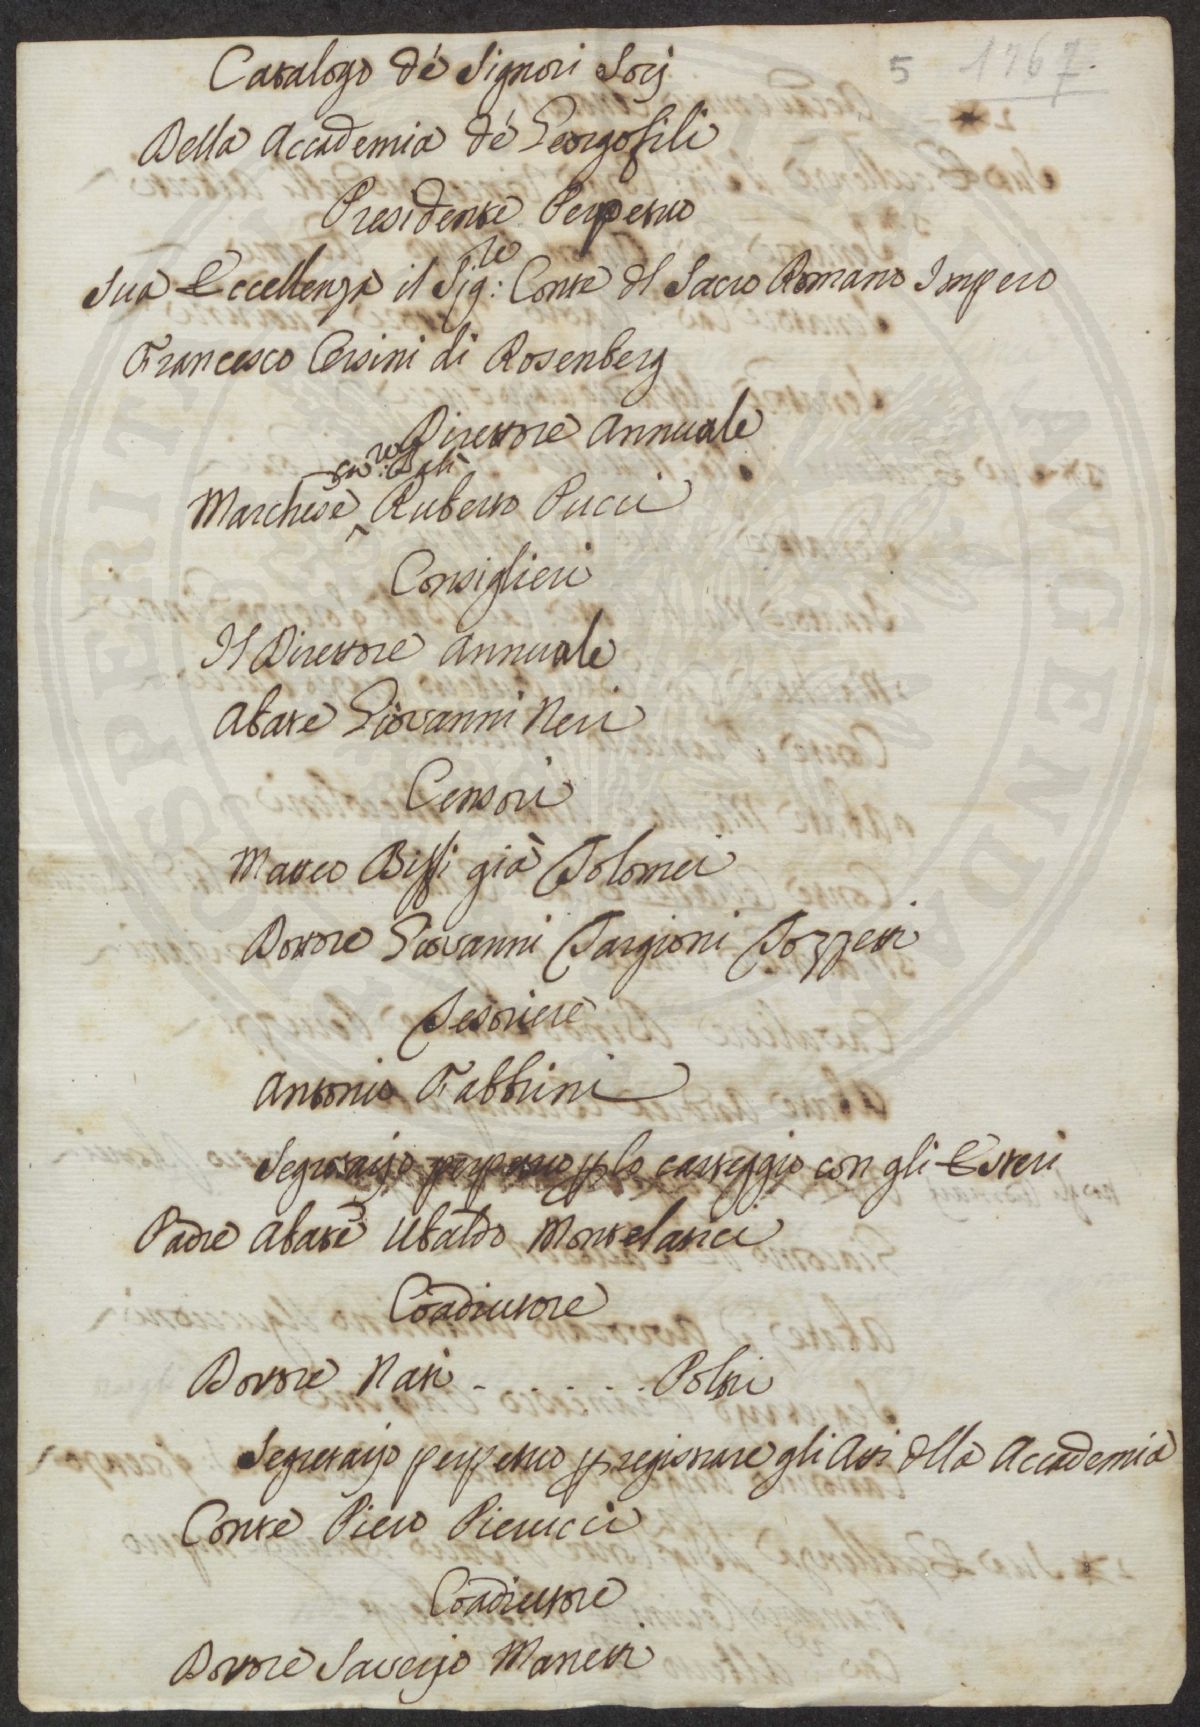 5 1767.
Catalogo dè Signori Socj
Della Accademia dè Georgofili
Presidente Perpetuo
Sua Eccellenza il Sig:re Conte dl Sacro Romano Impero
Francesco Orsini di Rosenberg
Direttore Annuale
Marchese Balì Ruberto Pucci
Consiglieri
Il Direttore Annuale
Abate Giovanni Neri
Censori
Matteo Biffi già Tolomei
Dottore Giovanni Targioni Tozzetti
Tesoriere
Antonio Fabbrini
Segretario perpetuo p lo carteggio con gli Esteri
Padre Abate Ubaldo Montelatici
Coadiutore
Dottore Nati - . . . . Poltri
Segretario perpetuo p registrare gli Atti dlla Accademia
Conte Piero Pierucci
Coadiutore
Dottore Saverio Manetti
PROSPERITATI AUGENDAE